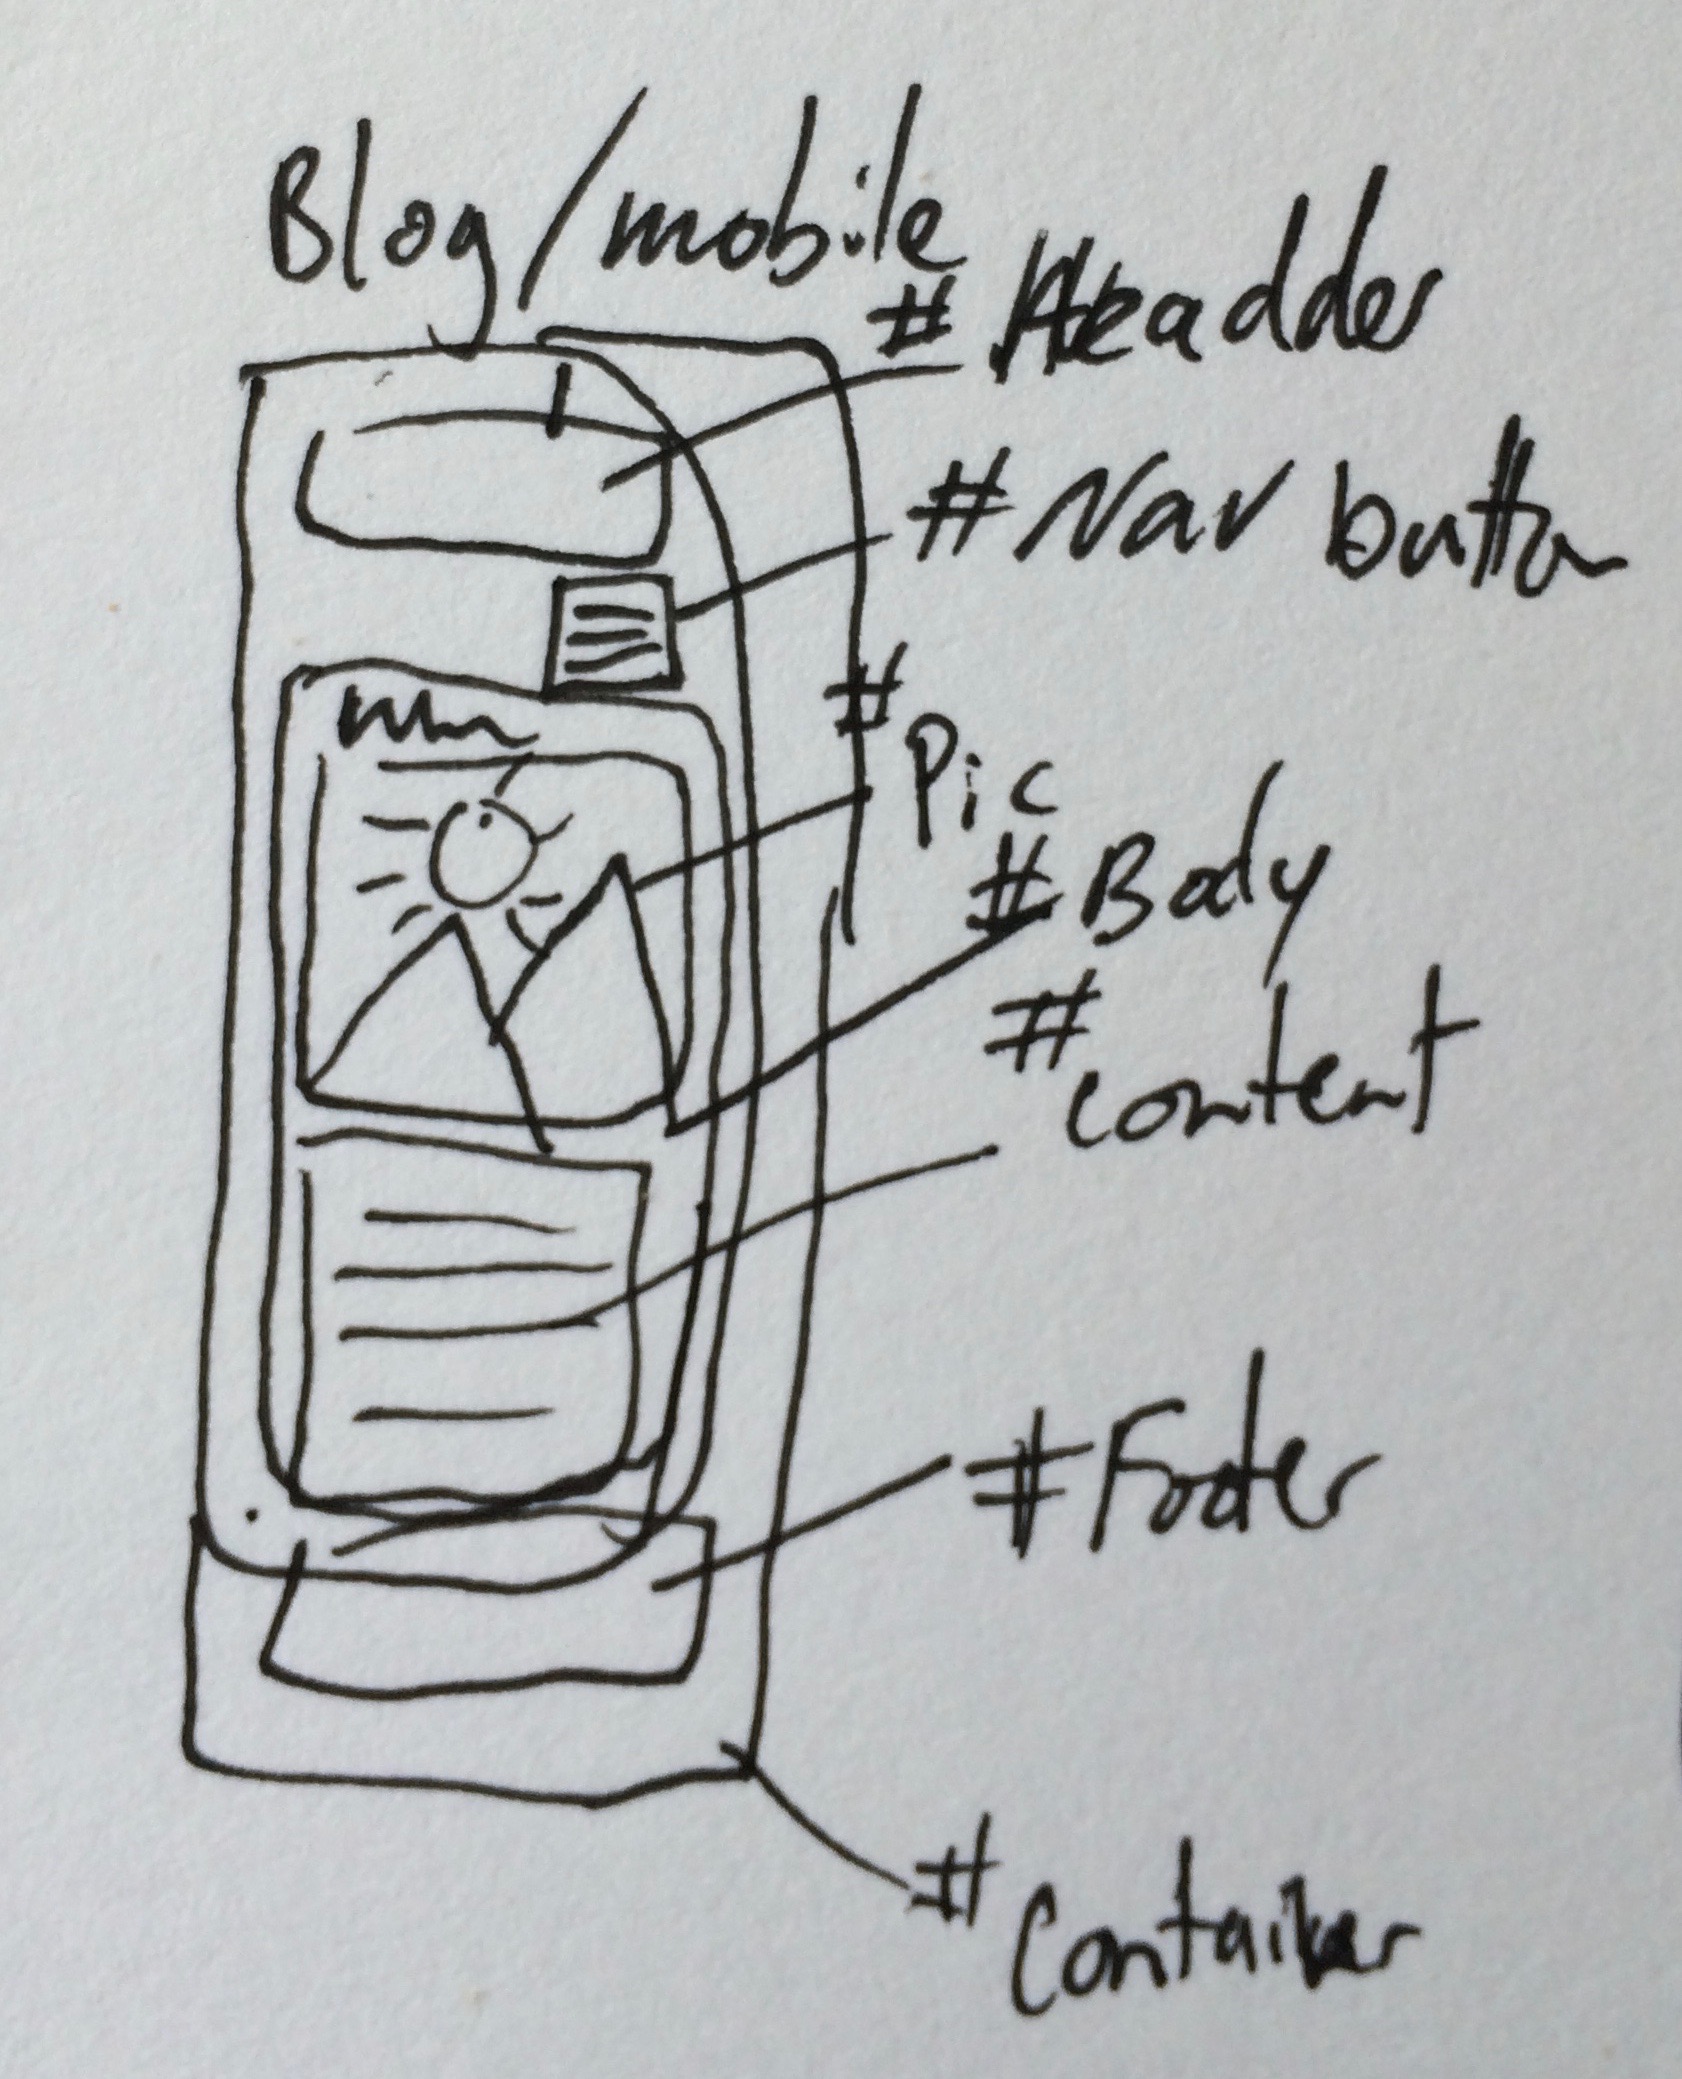 Blog/mobile
# Headder
# Nav button
# Pic
# Body
# content
# Footer
# Container